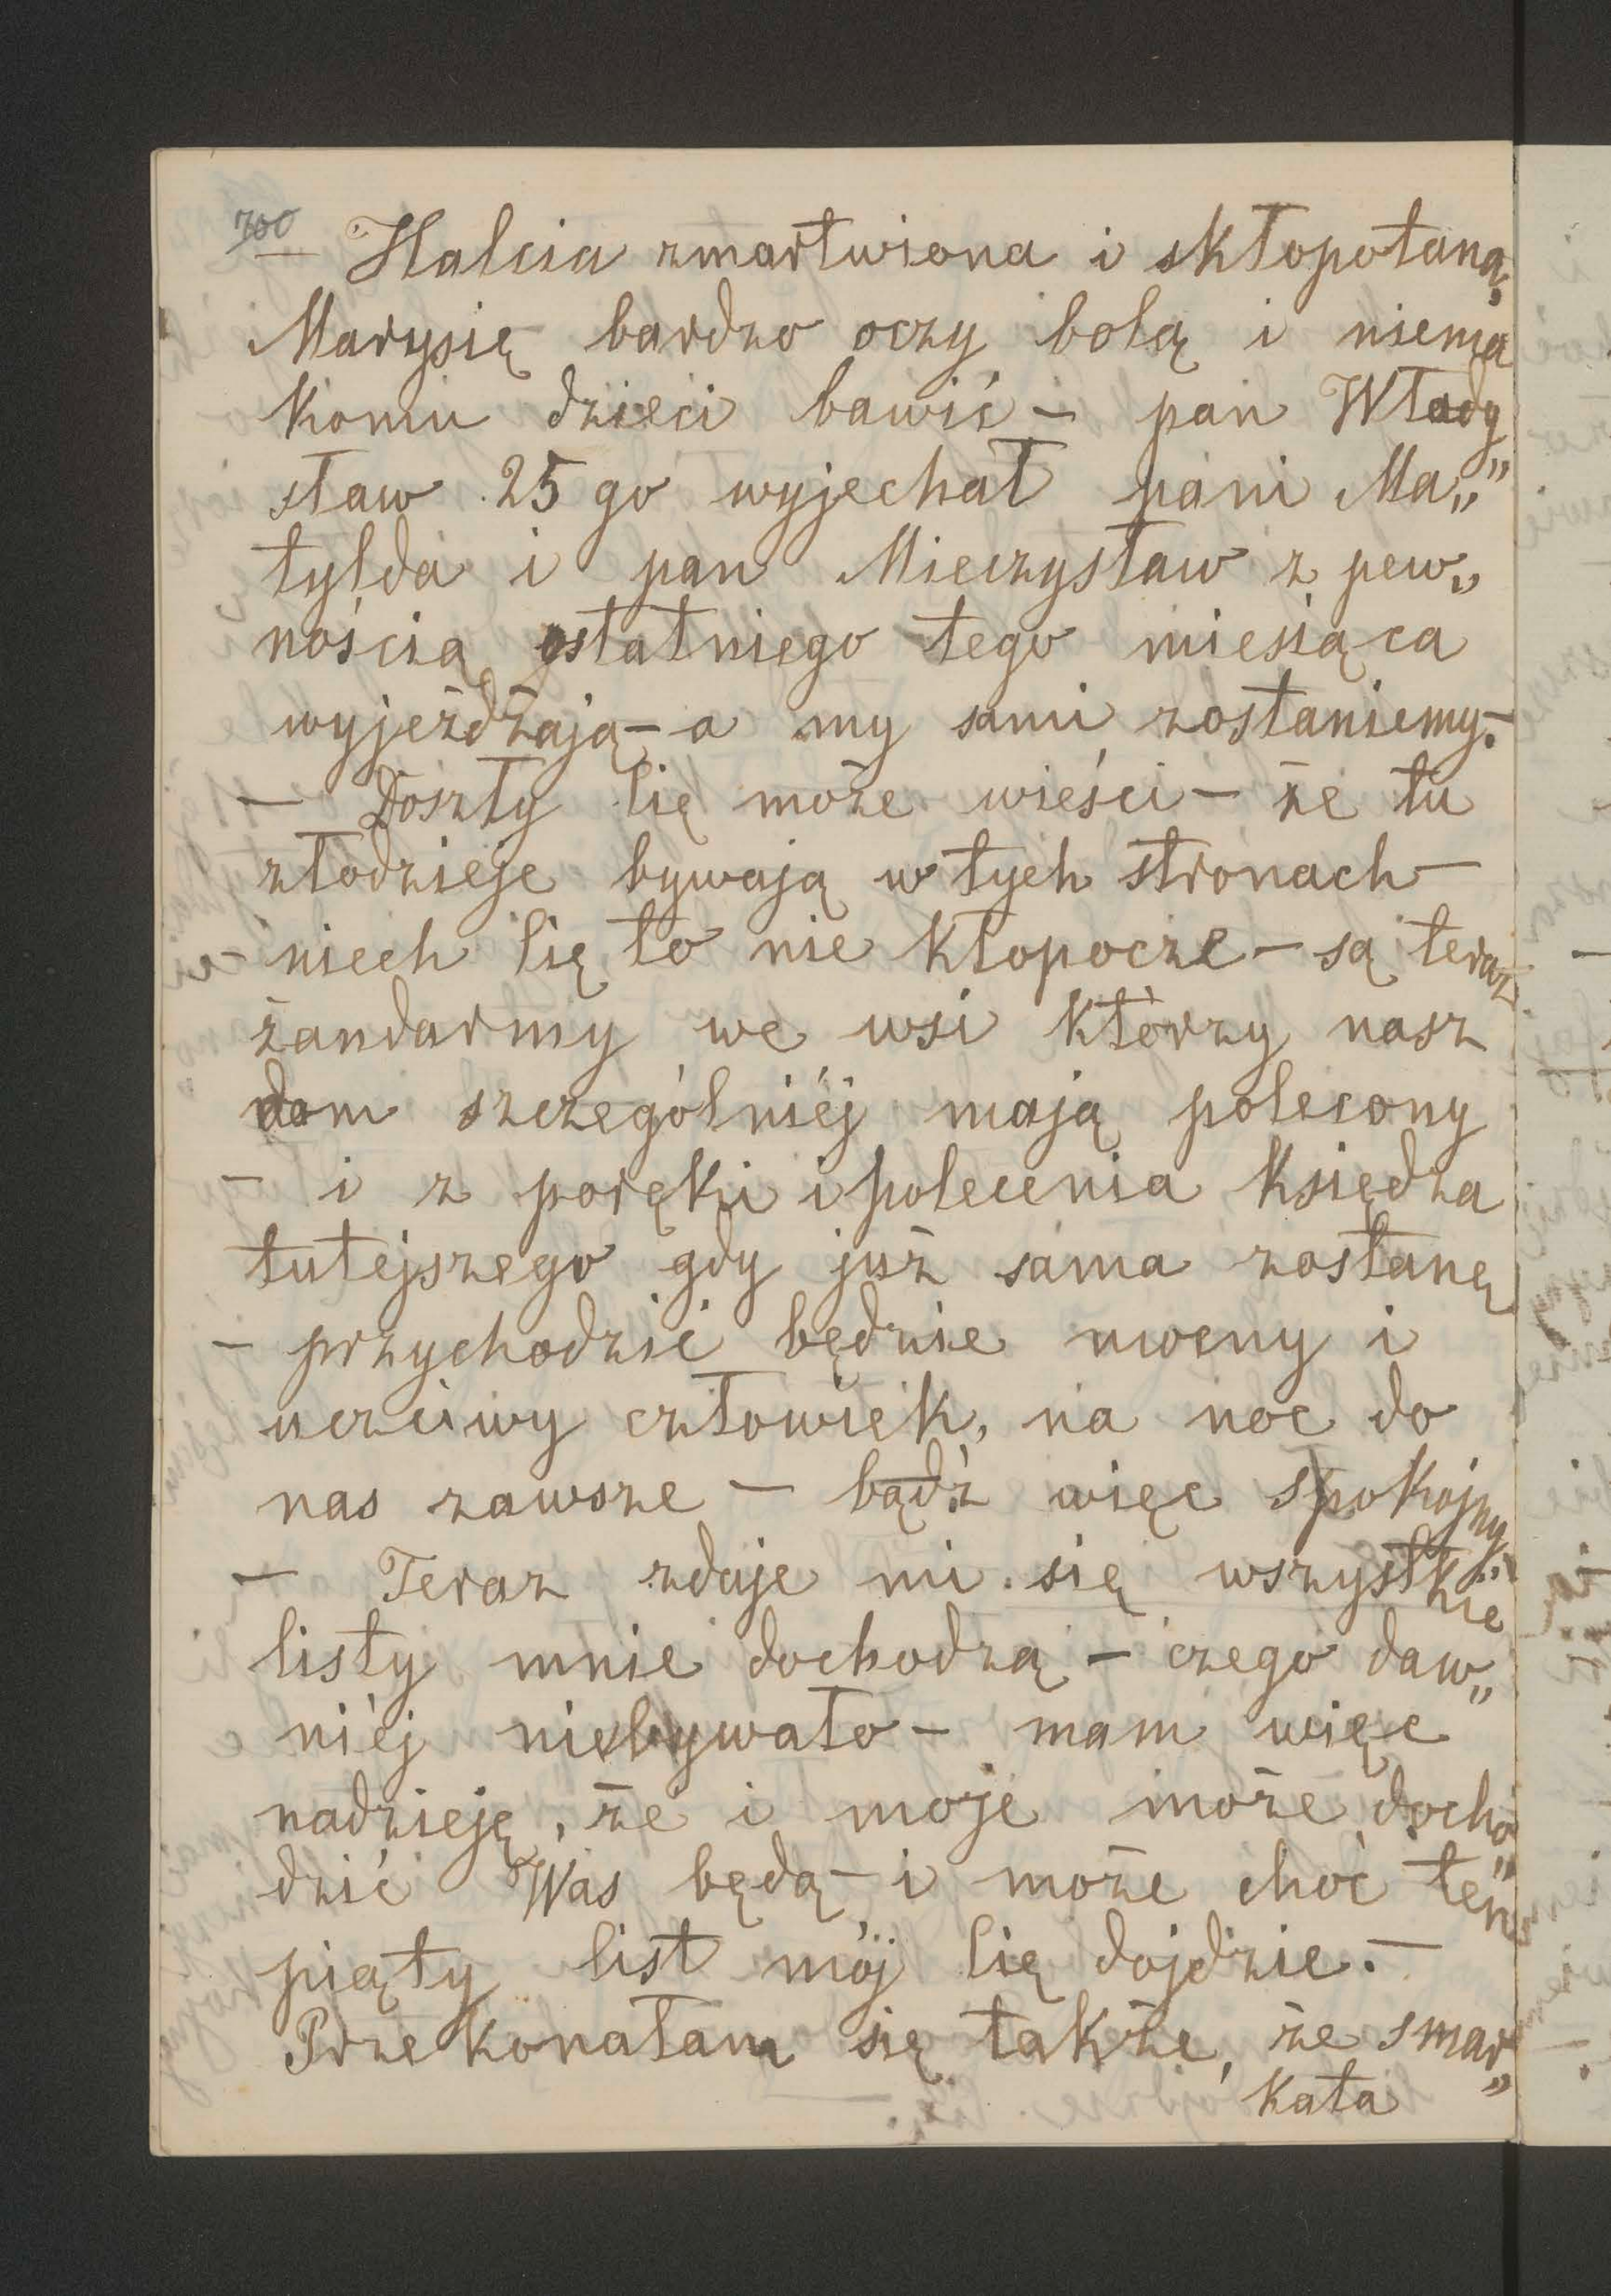 700
— Halcia zmartwiona i skłopotana,
Marysię bardzo oczy bolą i niema
komu dzieci bawić — pan Włady„
sław 25 go wyjechał pani Ma„
tylda i pan Mieczysław z pew„
nością ostatniego tego miesiąca
wyjeżdżają — a my sami zostaniemy. —
— Doszły Cię może wieści — że tu
złodzieje bywają w tych stronach —
— niech Cię to nie kłopocze — są teraz
żandarmy we wsi którzy nasz
dom szczególniéj mają polecony
— i z poręki i polecenia księdza
tutejszego gdy już sama zostanę
— przychodzić będzie mocny i
uczciwy człowiek, na noc do
nas zawsze — bądź więc spokojny.
— Teraz zdaje mi się wszystkie
listy mnie dochodzą — czego daw„
niéj niebywało — mam więc
nadzieję, że i moje może docho„
dzić Was będą — i może choć ten
piąty list mój Cię dojdzie. —
Przekonałam się także, że smar„
kata